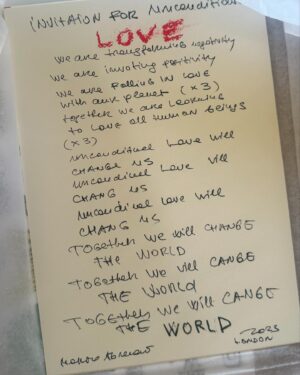 iNVITAION FOR UNCONDITIONAL
LOVE
We are transforming negativity
We are inviting positivity
We are Falling IN LOVE
with our planet (x3)
together we are learning
to Love all human beings
(x3)
unconditional Love will
CHANGE US
unconditional Love will
CHANG US
unconditional love will
CHANG US
TOGETHER WE will CHANGE
THE WORLD
TOGETHER WE will CANGE
THE WORLD
TOGETHER WE will CANGE
THE WORLD
2025
LONDON